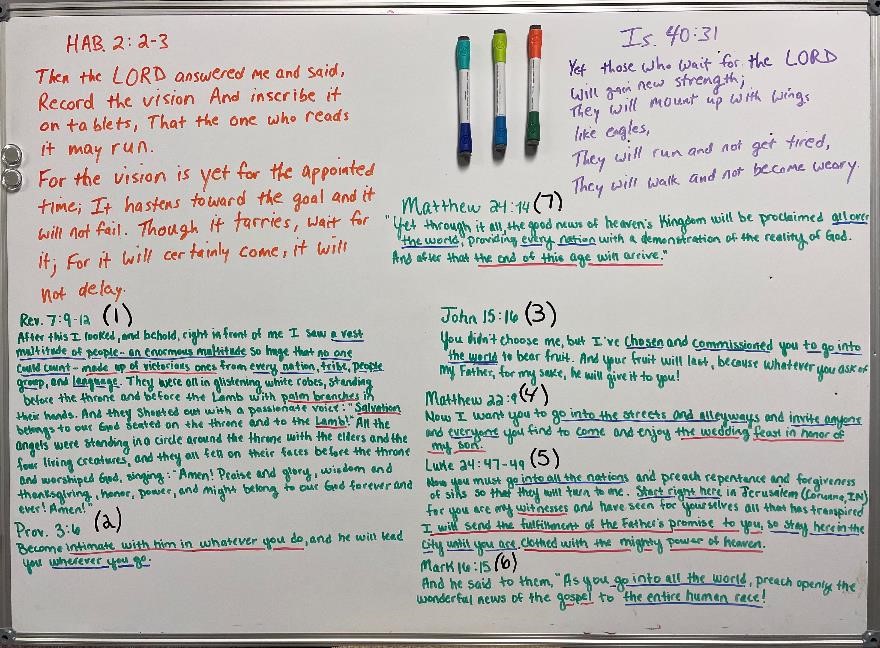 HAB. 2:2-3
Then the LORD answered me and said,
Record the vision And inscribe it
on tablets, That the one who reads
it may run.
For the vision is yet for the appointed
time; It hastens toward the goal and it
will not fail. Though it tarries, wait for
it; For it will certainly come, it will
not delay.
Is. 40:31
Yet those who wait for the LORD
Will gain new strength;
They will mount up with wings
like eagles,
They will run and not get tired,
They will walk and not become weary.
Matthew 24:14 (7)
"Yet through it all, the good news of heaven's Kingdom will be proclaimed all over
the world, providing every nation with a demonstration of the reality of God.
And after that the end of this age will arrive."
Rev. 7:9-12 (1)
After this I looked, and behold, right in front of me I saw a vast
multitude of people - an enormous multitude so huge that no one
could count - made up of victorious ones from every nation, tribe, people
group, and language. They were all in glistening white robes, standing
before the throne and before the Lamb with palm branches in
their hands. And they shouted out with a passionate voice: "Salvation
belongs to our God seated on the throne and to the Lamb!" All the
angels were standing in a circle around the throne with the elders and the
four living creatures, and they all fell on their faces before the throne
and worshiped God, singing: "Amen! Praise and glory, wisdom and
thanksgiving, honor, power, and might belong to our God forever and
ever! Amen!"
Prov. 3:6 (2)
Become intimate with him in whatever you do, and he will lead
you wherever you go.
John 15:16 (3)
You didn't choose me, but I've chosen and commissioned you to go into
the world to bear fruit. And your fruit will last, because whatever you ask of
my Father, for my sake, he will give it to you!
Matthew 22:9 (4)
Now I want you to go into the streets and alleyways and invite anyone
and everyone you find to come and enjoy the wedding feast in honor of
my son.
Luke 24:47-49 (5)
Now you must go into all the nations and preach repentance and forgiveness
of sins so that they will turn to me. Start right here in Jerusalem (Corunna, IN)
for you are my witnesses and have seen for yourselves all that has transpired
I will send the fulfillment of the Father's promise to you, so stay here in the
city until you are clothed with the mighty power of heaven.
Mark 16:15 (6)
And he said to them, "As you go into all the world, preach openly the
wonderful news of the gospel to the entire human race!